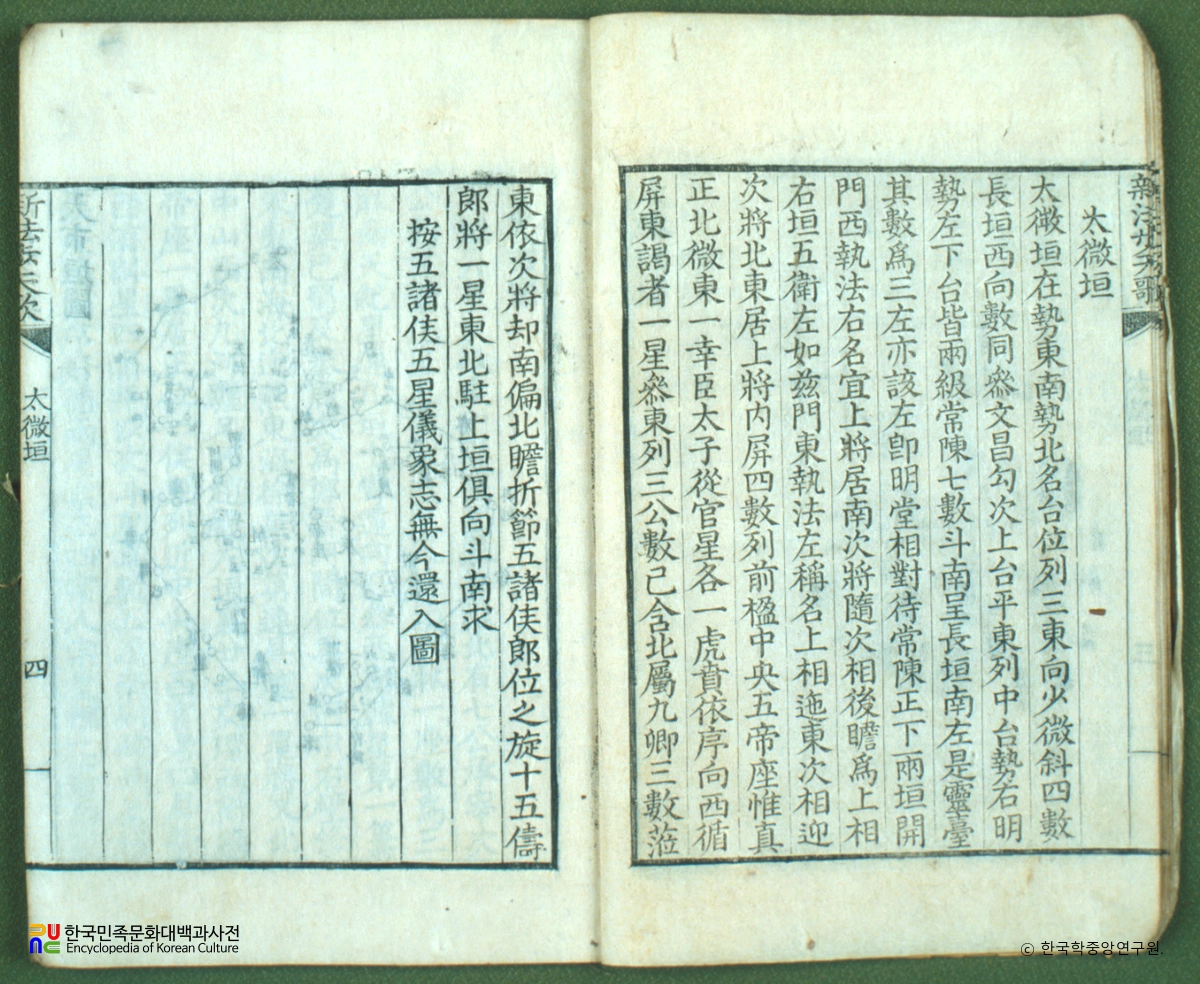 新法步天歌
太微垣
太微垣在勢東南勢北名台位列三東向少微斜四數
長垣西向數同叅文昌勾次上台平東列中台勢右明
勢左下台皆兩級常陳七數斗南呈長垣南左是靈臺
其數爲三左亦該左卽明堂相對待常陳正下兩垣開
門西執法右名宜上將居南次將隨次相後瞻爲上相
右垣五衛左如兹門東執法左稱名上相迤東次相迎
次將北東居上將内屏四數列前楹中央五帝座惟真
正北微東一幸臣太子從官星各一虎賁依序向西循
屏東謁者一星叅東列三公數已含北屬九卿三數蒞
東依次將却南偏北瞻折節五諸侯郎位之旋十五儔
郎將一星東北駐上垣俱向斗南求
按五諸侯五星儀象志無今還入圖
新法步天歌
太微垣
四
한국민족문화대백과사전
Encyclopedia of Korean Culture
ⓒ 한국학중앙연구원.